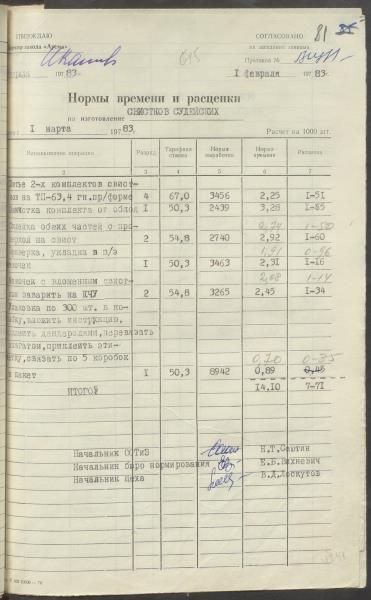 УТВЕРЖДАЮ СОГЛАСОВАНО 81
завода
Протокол №
1983г. 615 I февраля 1983г.
Нормы времени и расценки
на изготовление СВИСТКОВ СУДЕЙСКИХ
I марта 1983г. Расчет на 1000 шт.
Наименование операции Разряд Тарифная ставка Норма выработки Норма времени Расценка
2 3 4 5 6 7
Литье 2-х комплектов свист-
ков на ТП-63,4 гн.пр/форме 4 67,0 3456 2,25 I-51
комплекта от облоя I 50,3 2439 3,28 I-65
2,74 1-50
обеих частей с про-
на свист 2 54,8 2740 2,92 I-60
1,91 0-96
укладка в п/э
мешочек I 50,3 3463 2,31 I-16
2,08 1-14
Мешочек с вложенным свист-
заварить на ПЧУ 2 54,8 3265 2,45 I-34
Упаковка по 300 шт. в ко-
вложить инструкцию,
перевязать
шпагатом, приклеить эти-
кетку, связать по 5 коробок 0,70 0-35
в пакет I 50,3 8942 0,89 0-45
ИТОГО: 14,10 7-71
Начальник ООТиЗ
Начальник бюро нормирования Е.В.Вихневич
Начальник цеха В.Д.Лоскутов